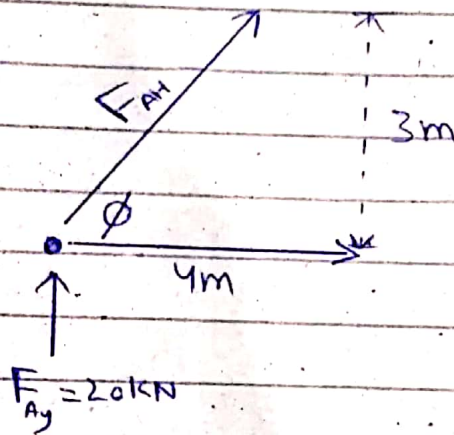 F_AH
3m
φ
4m
F_Ay = 20KN